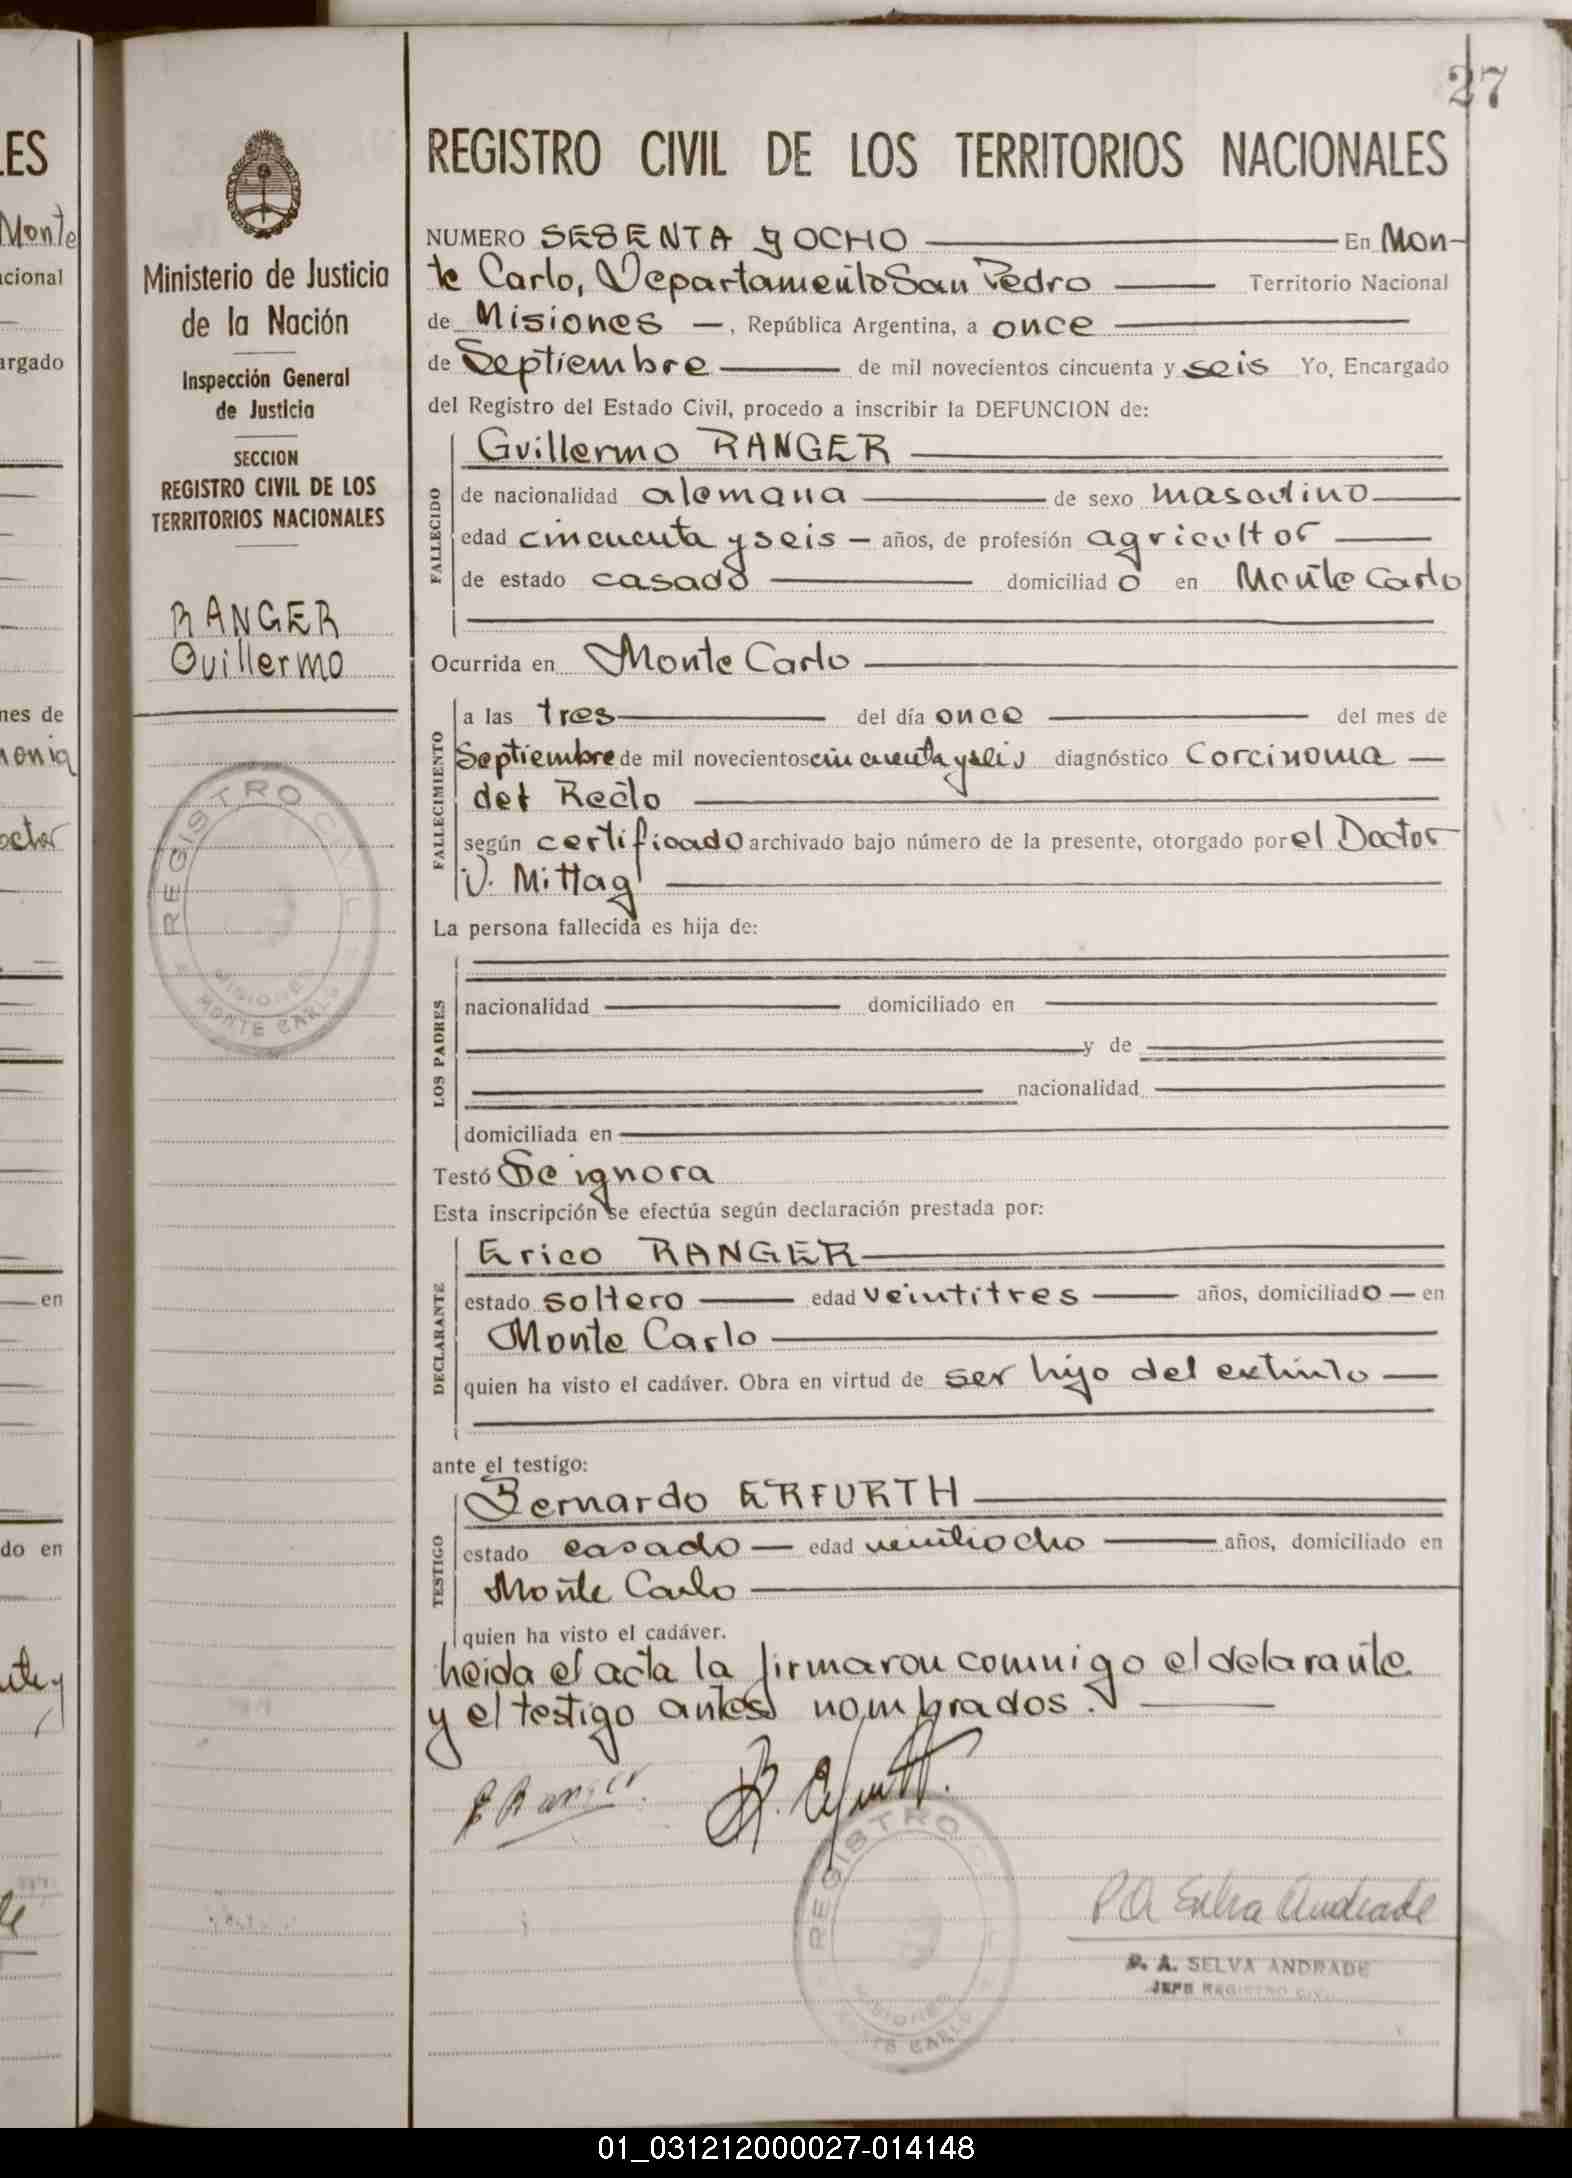 27
REGISTRO CIVIL DE LOS TERRITORIOS NACIONALES
Ministerio de Justicia
de la Nación
Inspección General
de Justicia
SECCION
REGISTRO CIVIL DE LOS
TERRITORIOS NACIONALES
RANGER
Guillermo
REGISTRO CIVIL
MISIONES
MONTE CARLO
NUMERO SESENTA y OCHO En Mon-
te Carlo, Departamento San Pedro Territorio Nacional
de Misiones , República Argentina, a once
de Septiembre de mil novecientos cincuenta y seis Yo, Encargado
del Registro del Estado Civil, procedo a inscribir la DEFUNCION de:
FALLECIDO
Guillermo RANGER
de nacionalidad alemana de sexo masculino
edad cincuenta y seis años, de profesión agricultor
de estado casado domiciliado en Monte Carlo
Ocurrida en Monte Carlo
FALLECIMIENTO
a las tres del día once del mes de
Septiembre de mil novecientos cincuenta y seis diagnóstico Corcinoma
del Recto
según certificado archivado bajo número de la presente, otorgado por el Doctor
V. Mittag
La persona fallecida es hija de:
LOS PADRES
nacionalidad domiciliado en
y de
nacionalidad
domiciliada en
Testó Se ignora
Esta inscripción se efectúa según declaración prestada por:
DECLARANTE
Erico RANGER
estado soltero edad veintitres años, domiciliado en
Monte Carlo
quien ha visto el cadáver. Obra en virtud de ser hijo del extinto
ante el testigo:
TESTIGO
Bernardo ERFURTH
estado casado edad veintiocho años, domiciliado en
Monte Carlo
quien ha visto el cadáver.
Leida el acta la firmaron conmigo el delarante
y el testigo antes nombrados.
E Ranger.
B. Erfurth.
REGISTRO
MISIONES
MONTE CARLO
P A Selva Andrade
P. A. SELVA ANDRADE
JEFE REGISTRO CIVIL
ES
Monte
acional
argado
nes de
octor
en
do en
01_031212000027-014148